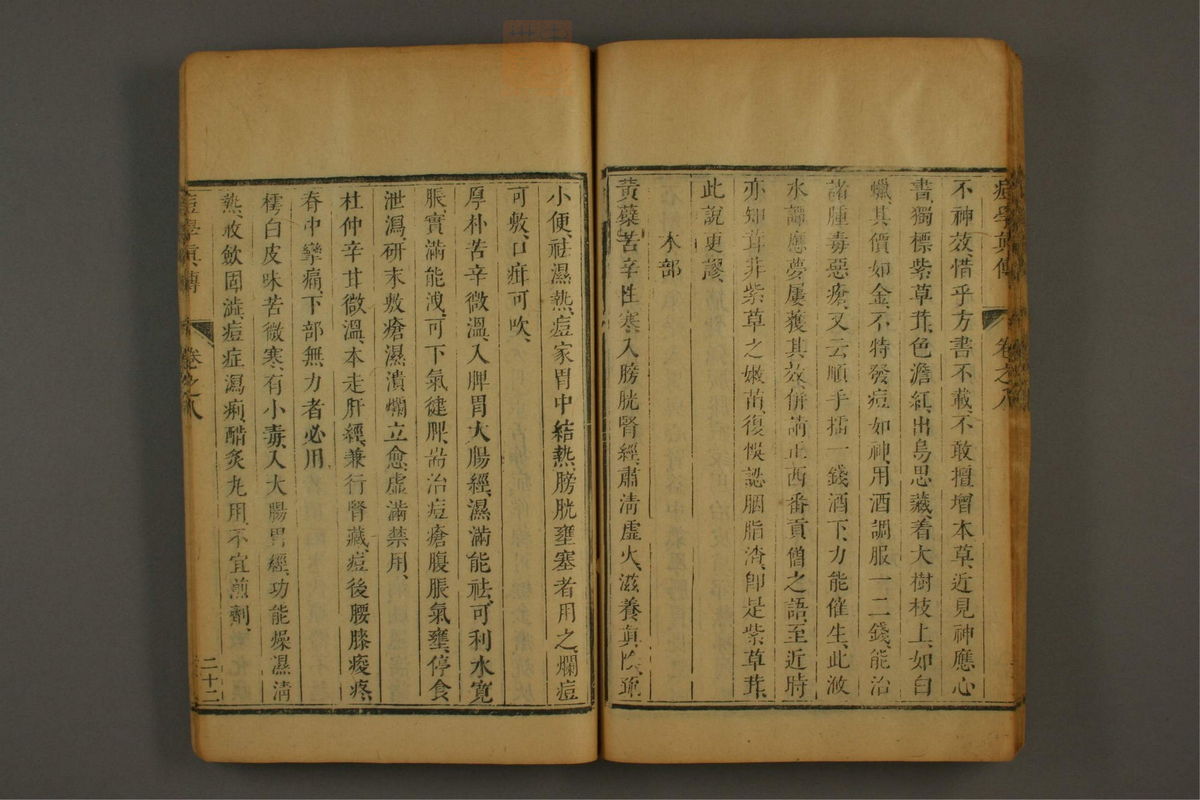 痘學真傳 卷之八
不神效、惜乎方書不載、不敢擅增本草、近見神應心
書、獨標紫草茸、色澹紅、出烏思藏、着大樹枝上、如白
蠟、其價如金、不特發痘如神、用酒調服一二錢、能治
諸腫毒惡瘡、又云順手擂一錢酒下、力能催生、此波
水謳應夢、屢獲其效、併請正西番貢僧之語、至近時
亦知茸非紫草之嫩苗、復悞認胭脂渣、卽是紫草茸、
此說更謬、
木部
黃蘗苦辛性寒、入膀胱腎經、肅清虛火、滋養真陰、通
小便、祛濕熱、痘家胃中結熱、膀胱壅塞者用之、爛痘
可敷、口疳可吹、
厚朴苦辛微溫、入脾胃大腸經、濕滿能祛、可利水寬
脹、實滿能洩、可下氣健脾、耑治痘瘡腹脹氣壅、停食
泄瀉、研末敷瘡濕潰爛立愈、虛滿禁用、
杜仲辛甘微溫、本走肝經、兼行腎藏、痘後腰膝痠疼、
春中攣痛、下部無力者必用
樗白皮味苦微寒、有小毒、入大腸胃經、功能燥濕清
熱、收歛固澁、痘症瀉痢、醋炙丸用、不宜煎劑、
痘學真傳 卷之八 二十二